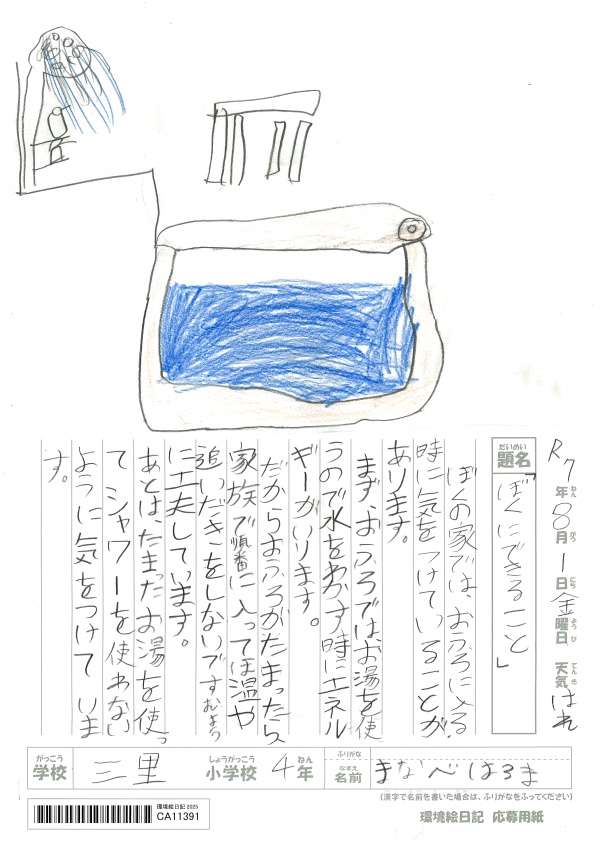 R7年8月1日金曜日 天気はれ
ねん がつ にち ようび てんき
だいめい
題名「ぼくにできること」
ぼくの家では、おふろに入る
時に気をつけていることが
あります。
まず、おふろではお湯を使
うので水をわかす時にエネル
ギーがいります。
だからおふろがたまったら
家族で順番に入ってほ温や
追いだきをしないですむよう
に工夫しています。
あとは、たまったお湯を使っ
てシャワーを使わない
ように気をつけていま
す。
がっこう しょうがっこう ねん ふりがな
学校 三里 小学校 4年 なまえ 名前 まなべはるま
(漢字で名前を書いた場合は、ふりがなをふってください)
環境絵日記 2025
CA11391
環境絵日記 応募用紙